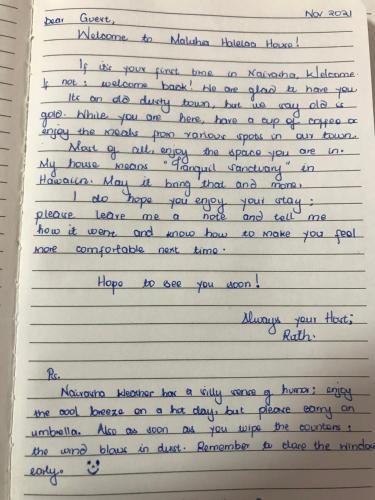 Dear Guest,
Nov 2021
Welcome to Maluhia Haleloa House!
If it's your first time in Naivasha, Welcome.
If not; welcome back! We are glad to have you
Its an old dusty town, but we say old is
gold. While you are here, have a cup of coffee or
enjoy the meals from various spots in our town.
Most of all, enjoy the space you are in.
My house means "Tranquil sanctuary" in
Hawaiin. May it bring that and more.
I do hope you enjoy your stay;
please leave me a note and tell me
how it went and know how to make you feel
more comfortable next time.
Hope to see you soon!
Always your Host;
Rath.
Ps.
Naivasha Weather has a silly sense of humor; enjoy
the cool breeze on a hot day, but please carry an
umbrella. Also as soon as you wipe the counters;
the wind blows in dust. Remember to close the window
early.